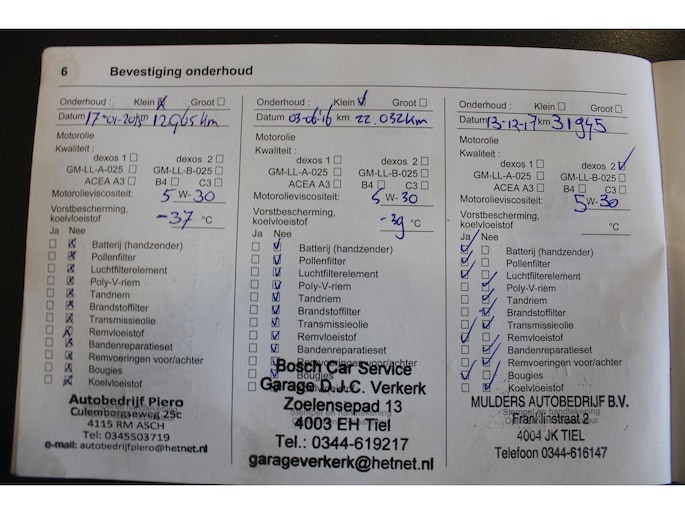 6 Bevestiging onderhoud
Onderhoud : Klein Groot
Datum 17-01-2015 km 12965km
Motorolie
Kwaliteit :
dexos 1 dexos 2
GM-LL-A-025 GM-LL-B-025
ACEA A3 B4 C3
Motorolieviscositeit: 5 W- 30
Vorstbescherming,
koelvloeistof -37 °C
Ja Nee
Batterij (handzender)
Pollenfilter
Luchtfilterelement
Poly-V-riem
Tandriem
Brandstoffilter
Transmissieolie
Remvloeistof
Bandenreparatieset
Remvoeringen voor/achter
Bougies
Koelvloeistof
Autobedrijf Piero
Culemborgseweg 25c
4115 RM ASCH
Tel: 0345503719
e-mail: autobedrijfpiero@hetnet.nl
Onderhoud : Klein Groot
Datum 03-06-16 km 22.032km
Motorolie
Kwaliteit :
dexos 1 dexos 2
GM-LL-A-025 GM-LL-B-025
ACEA A3 B4 C3
Motorolieviscositeit: 5 W- 30
Vorstbescherming,
koelvloeistof -39 °C
Ja Nee
Batterij (handzender)
Pollenfilter
Luchtfilterelement
Poly-V-riem
Tandriem
Brandstoffilter
Transmissieolie
Remvloeistof
Bandenreparatieset
Remvoeringen voor/achter
Bougies
Koelvloeistof
Bosch Car Service
Garage D.J.C. Verkerk
Zoelensepad 13
4003 EH Tiel
Tel.: 0344-619217
garageverkerk@hetnet.nl
Onderhoud : Klein Groot
Datum 13-12-17 km 31945
Motorolie
Kwaliteit :
dexos 1 dexos 2
GM-LL-A-025 GM-LL-B-025
ACEA A3 B4 C3
Motorolieviscositeit: 5 W- 30
Vorstbescherming,
koelvloeistof °C
Ja Nee
Batterij (handzender)
Pollenfilter
Luchtfilterelement
Poly-V-riem
Tandriem
Brandstoffilter
Transmissieolie
Remvloeistof
Bandenreparatieset
Remvoeringen voor/achter
Bougies
Koelvloeistof
MULDERS AUTOBEDRIJF B.V.
Stempel en handtekening
Franklinstraat 2
4004 JK TIEL
Telefoon 0344-616147